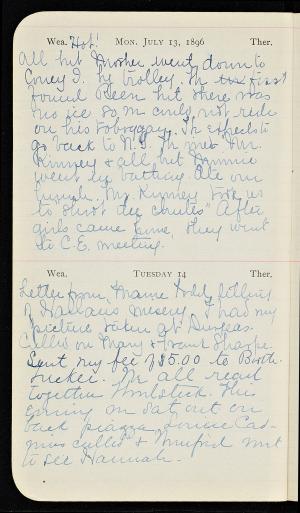 Wea. Hot! MON. JULY 13, 1896 Ther.
All but Mother went down to
Coney I. by trolley. We first
found there was
no ice so M could not ride
on his toboggan. He expects to
go back to N.Y. We met Mr.
Kinney & all but Minnie
went in bathing. Ate our
lunch. Mr. Kinney took us
to "Shoot the chutes" After
girls came home, they went
to C.E. meeting.
Wea. TUESDAY 14 Ther.
Letter from Mame telling
of misery. I had my
picture taken at
Called on Mary & Aunt
Sent my fee of $5.00 to
We all read
together This
evening we sat out on
back piazza, Louise
called & Winifred went
to see Hannah.